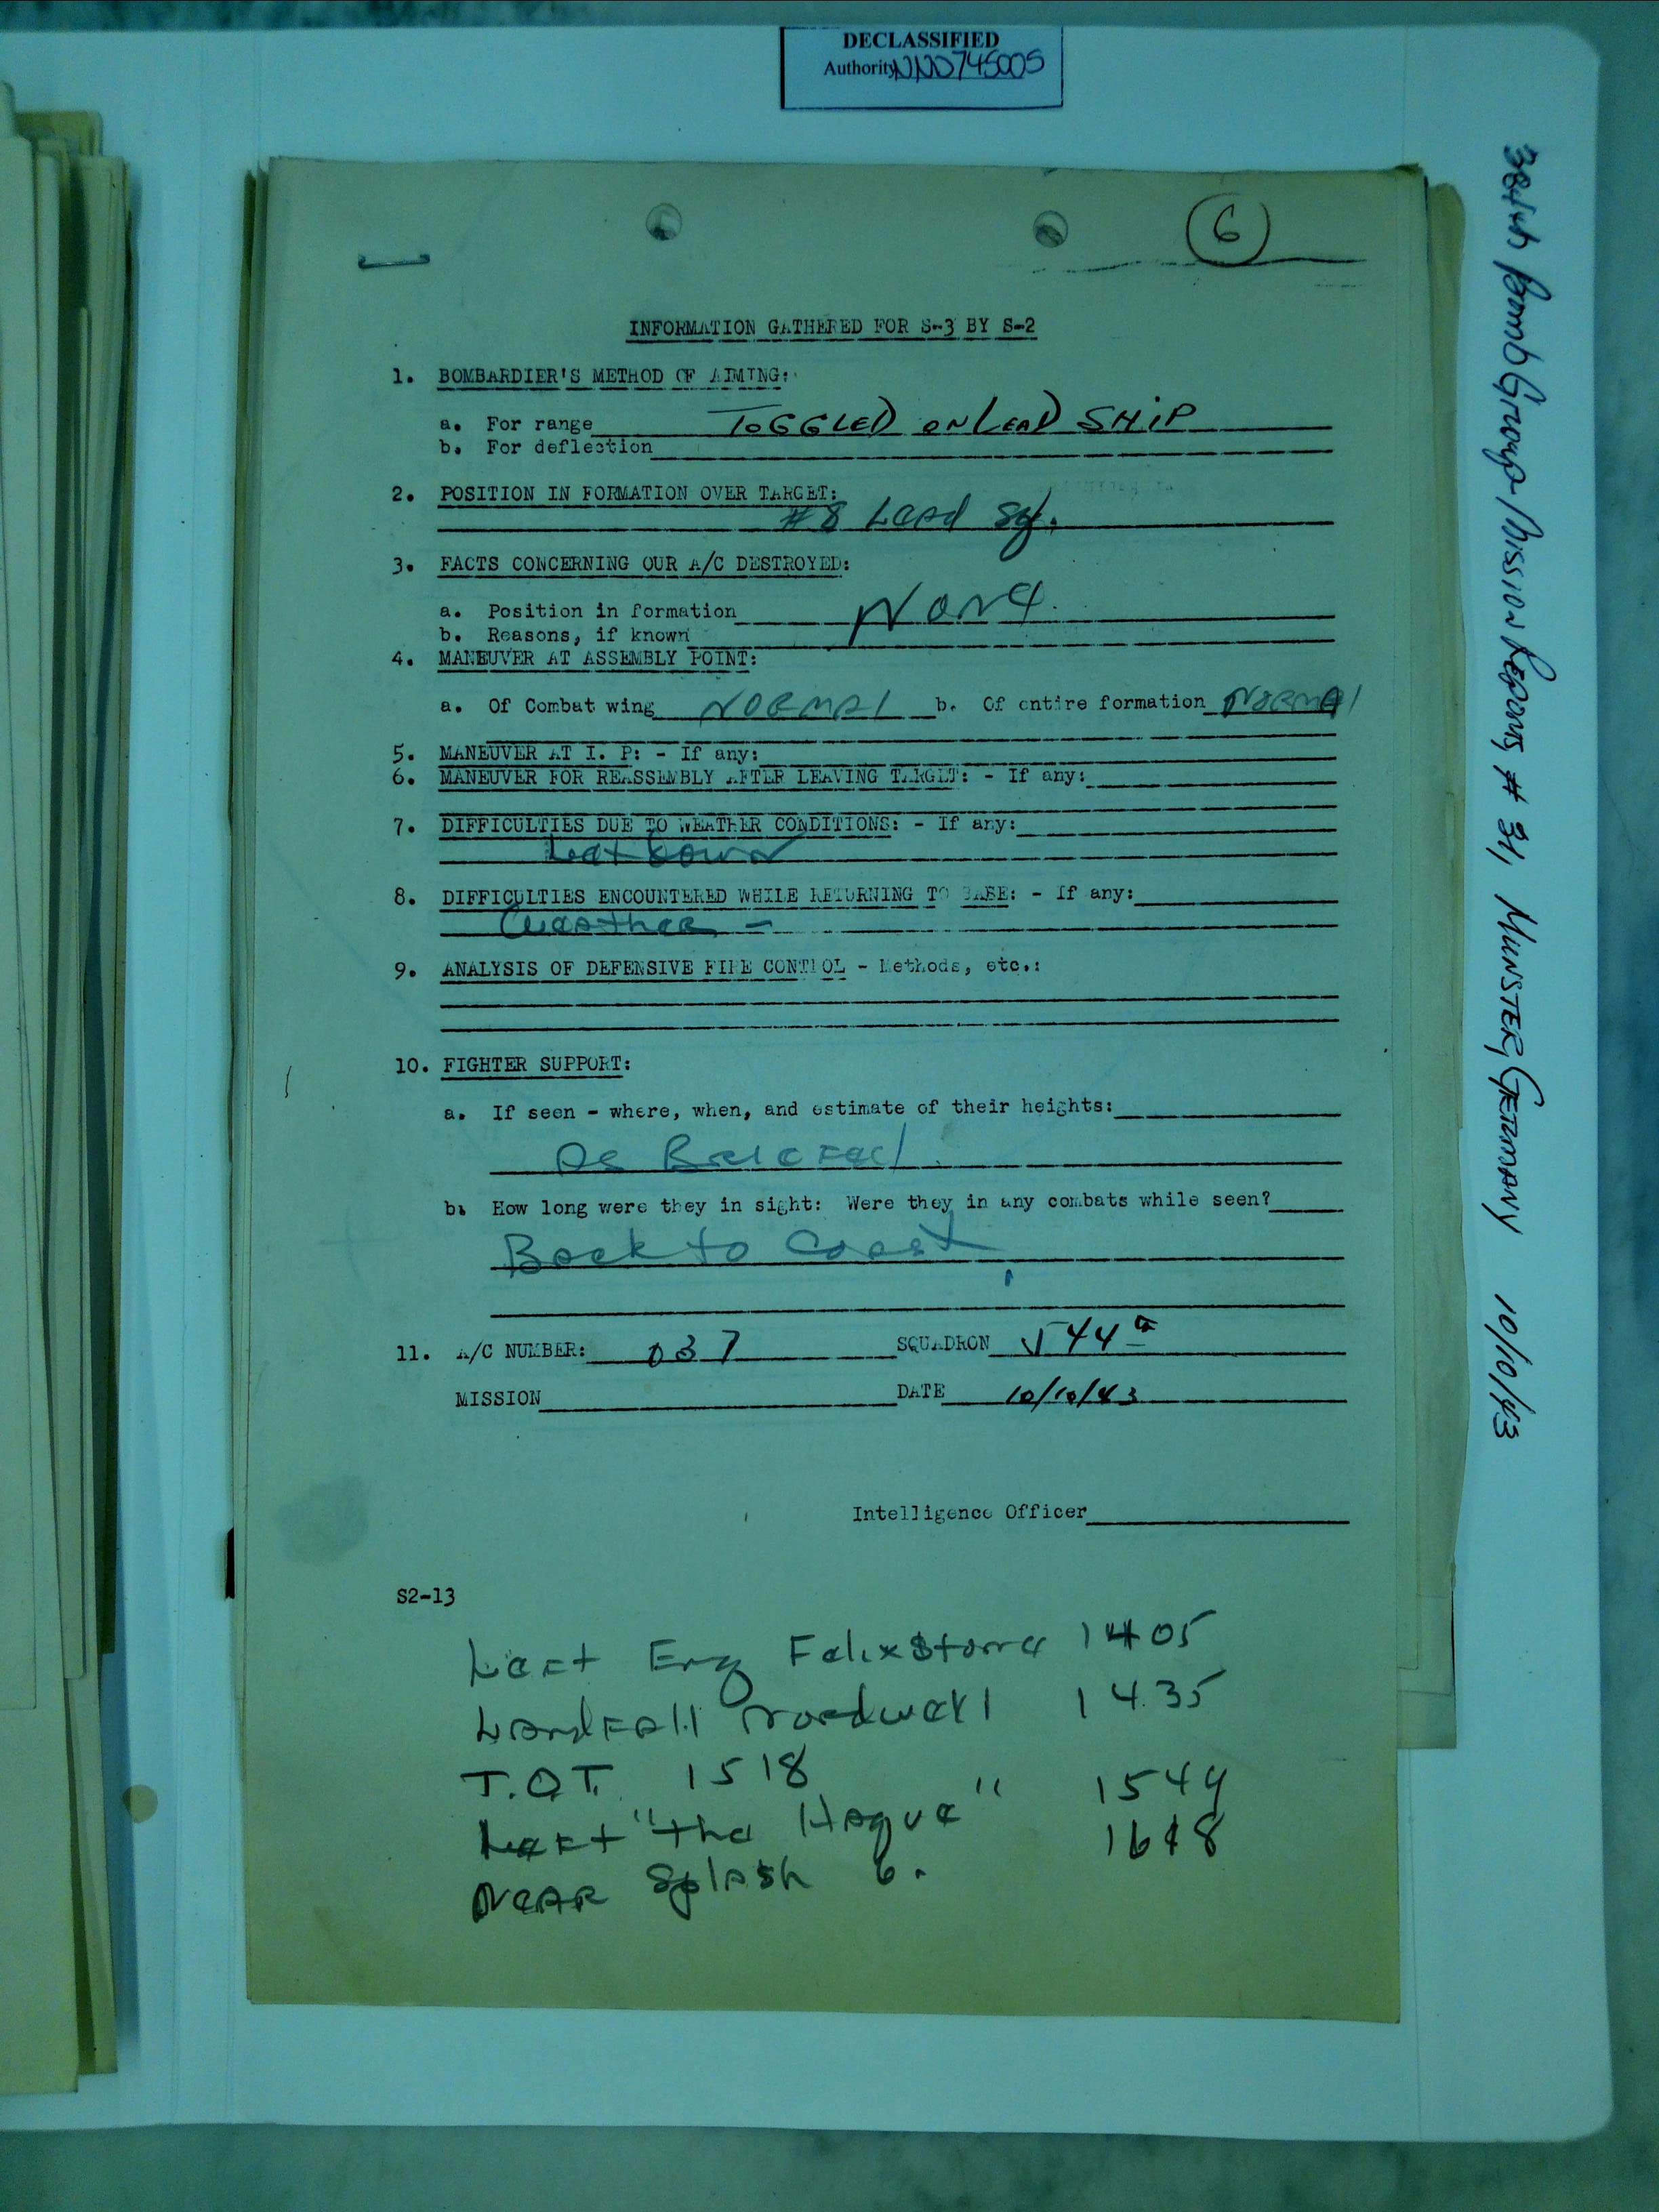 DECLASSIFIED
Authority NND745005
6
INFORMATION GATHERED FOR S-3 BY S-2
1. BOMBARDIER'S METHOD OF AIMING:
a. For range TOGGLED ON LEAD SHIP
b. For deflection
2. POSITION IN FORMATION OVER TARGET:
#8 Lead Sq.
3. FACTS CONCERNING OUR A/C DESTROYED:
a. Position in formation None
b. Reasons, if known
4. MANEUVER AT ASSEMBLY POINT:
a. Of Combat wing NORMAl b. Of entire formation NORMAl
5. MANEUVER AT I. P: - If any:
6. MANEUVER FOR REASSEMBLY AFTER LEAVING TARGET: - If any:
7. DIFFICULTIES DUE TO WEATHER CONDITIONS: - If any:
Let Down
8. DIFFICULTIES ENCOUNTERED WHILE RETURNING TO BASE: - If any:
Weather -
9. ANALYSIS OF DEFENSIVE FIRE CONTROL - Methods, etc.:
10. FIGHTER SUPPORT:
a. If seen - where, when, and estimate of their heights:
As Briefed.
b. How long were they in sight: Were they in any combats while seen?
Back to Coast
11. A/C NUMBER: 037 SQUADRON 544th
MISSION DATE 10/10/43
Intelligence Officer
S2-13
Left Eng Felixstowe 1405
Landfall Noordwal 1435
T.O.T. 1518
Left "The Hague" 1544
Near Splash 6. 1618
384th Bomb Group Mission Reports, # 31, MUNSTER, GERMANY 10/10/43